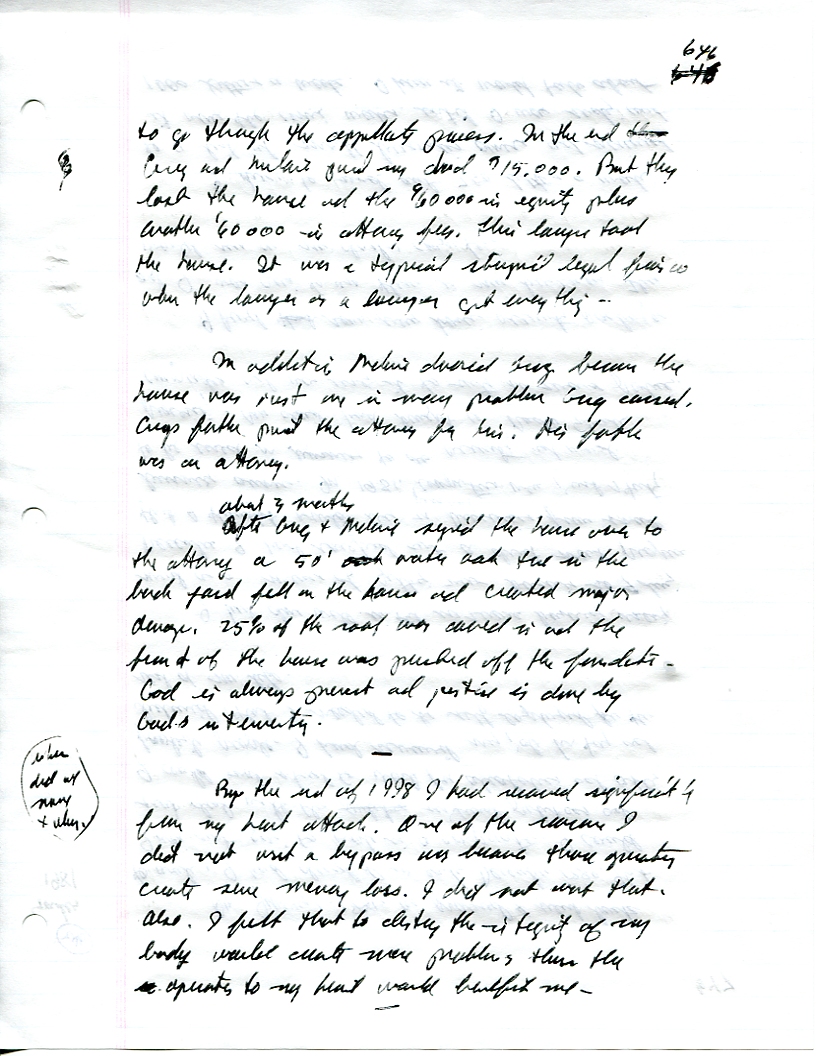 646
to go through the appellate process. In the end
Greg and Melanie paid my dad $15,000. But they
lost the house and the $60000 in equity plus
another $60000 in attorney fees. This lawyer took
the house. It was a typical stupid legal fiasco
when the lawyer or a lawyer got everything -
In addition Melanie divorced Greg because the
house was just one in many problems Greg caused.
Gregs father paid the attorney for him. His father
was an attorney.
about 3 months
After Greg + Melanie signed the house over to
the attorney a 50' water oak tree in the
back yard fell on the house and created major
damage. 25% of the roof was caved in and the
front of the house was pushed off the foundation -
God is always present and justice is done by
God's
By the end of 1998 I had recovered significantly
from my heart attack. One of the reasons I
did not want a bypass was because those operations
create some memory loss. I did not want that.
Also. I felt that to destroy the integrity of my
body would create more problems than the
operation to my heart would benefit me -
when
did at
+ when